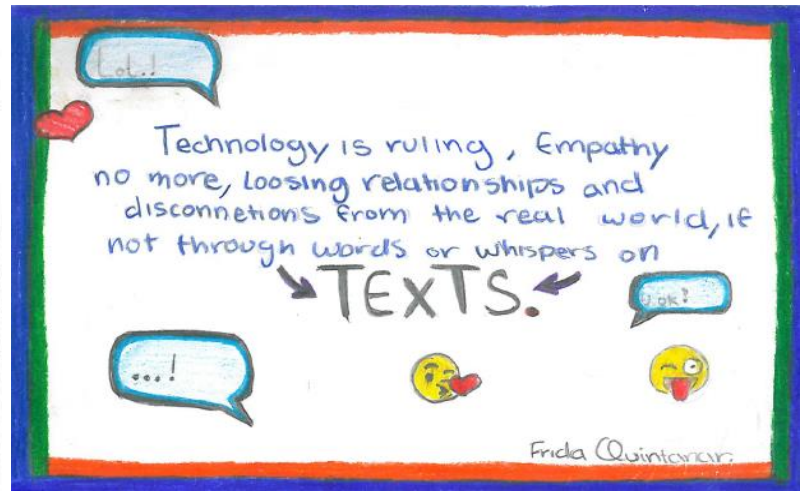 Lol.!
Technology is ruling, Empathy
no more, Loosing relationships and
disconnetions from the real world, if
not through words or whispers on
TEXTS.
U ok?
...!
Frida Quintanar